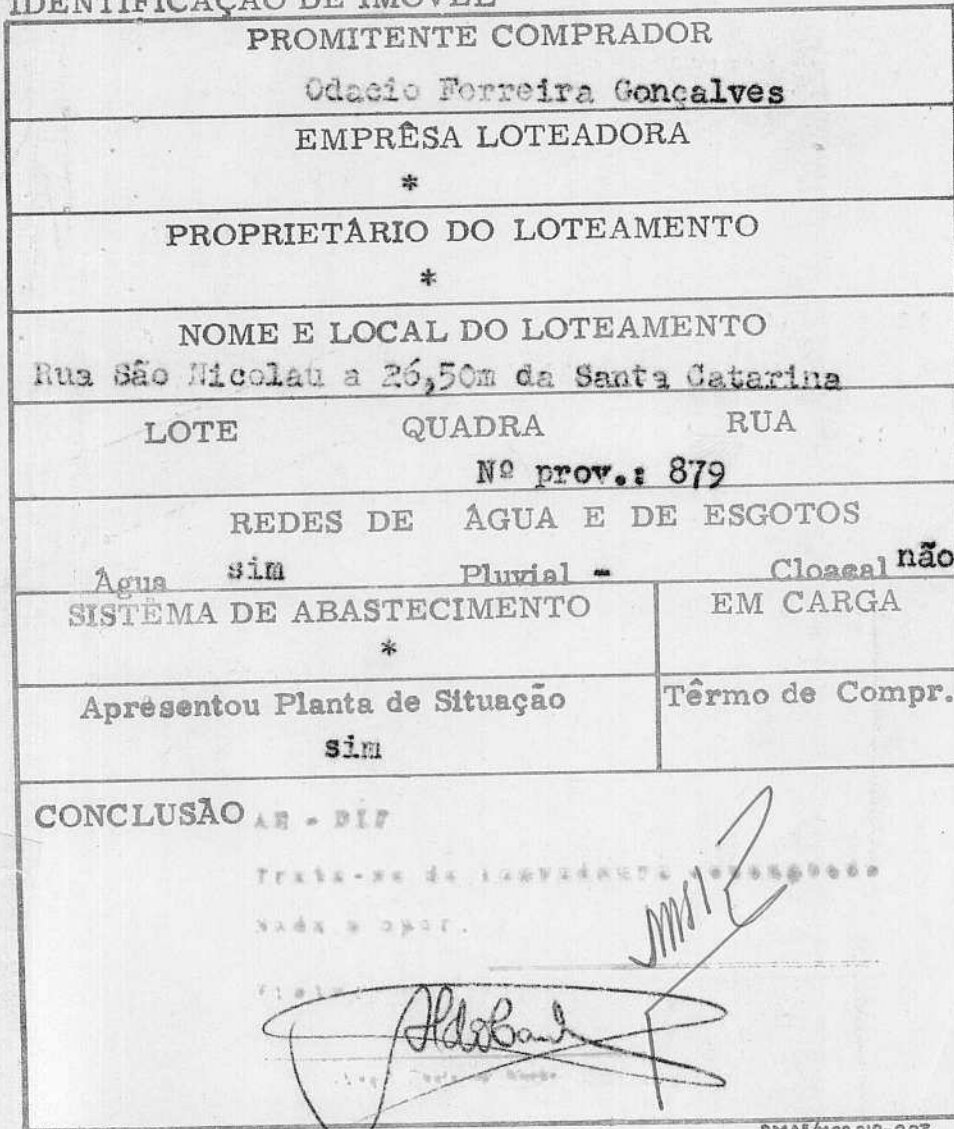 IDENTIFICAÇÃO DE IMÓVEL
PROMITENTE COMPRADOR
Odacio Ferreira Gonçalves
EMPRÊSA LOTEADORA
*
PROPRIETÁRIO DO LOTEAMENTO
*
NOME E LOCAL DO LOTEAMENTO
Rua São Nicolau a 26,50m da Santa Catarina
LOTE QUADRA RUA
Nº prov.: 879
REDES DE ÁGUA E DE ESGOTOS
Água sim Pluvial - Cloacal não
SISTEMA DE ABASTECIMENTO EM CARGA
*
Apresentou Planta de Situação Têrmo de Compr.
sim
CONCLUSÃO
Trata-se de
Nada a opor.